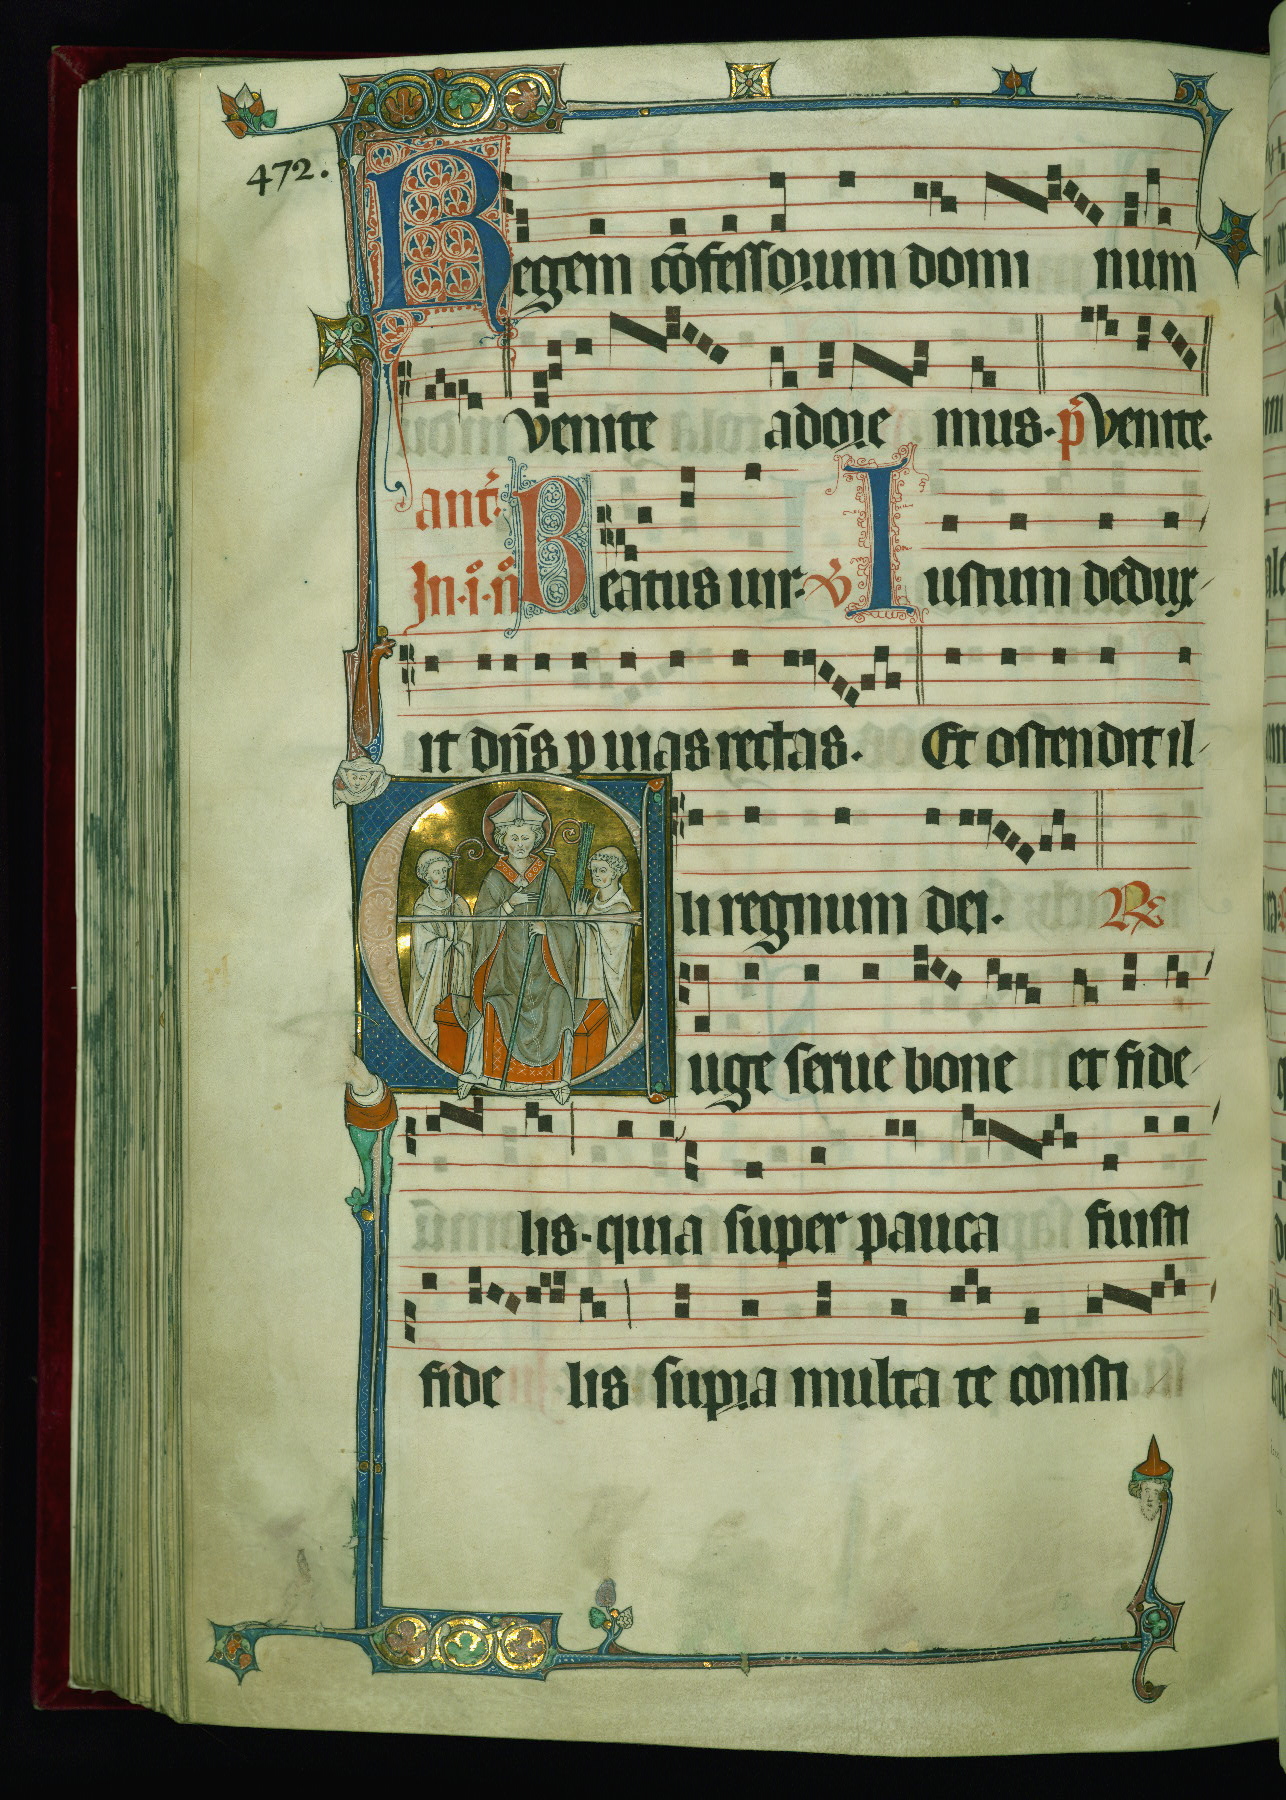 472.
Regem cõfessorum domi num
venite adore mus. p̃s venite.
ant̃.
In .i. ñ Beatus uir. ℣ Iustum dedux
it dñs p uias rectas. Et ostendit il
li regnum dei. ℟
Euge serue bone et fide
lis. quia super pauca fuisti
fide lis supra multa te consti